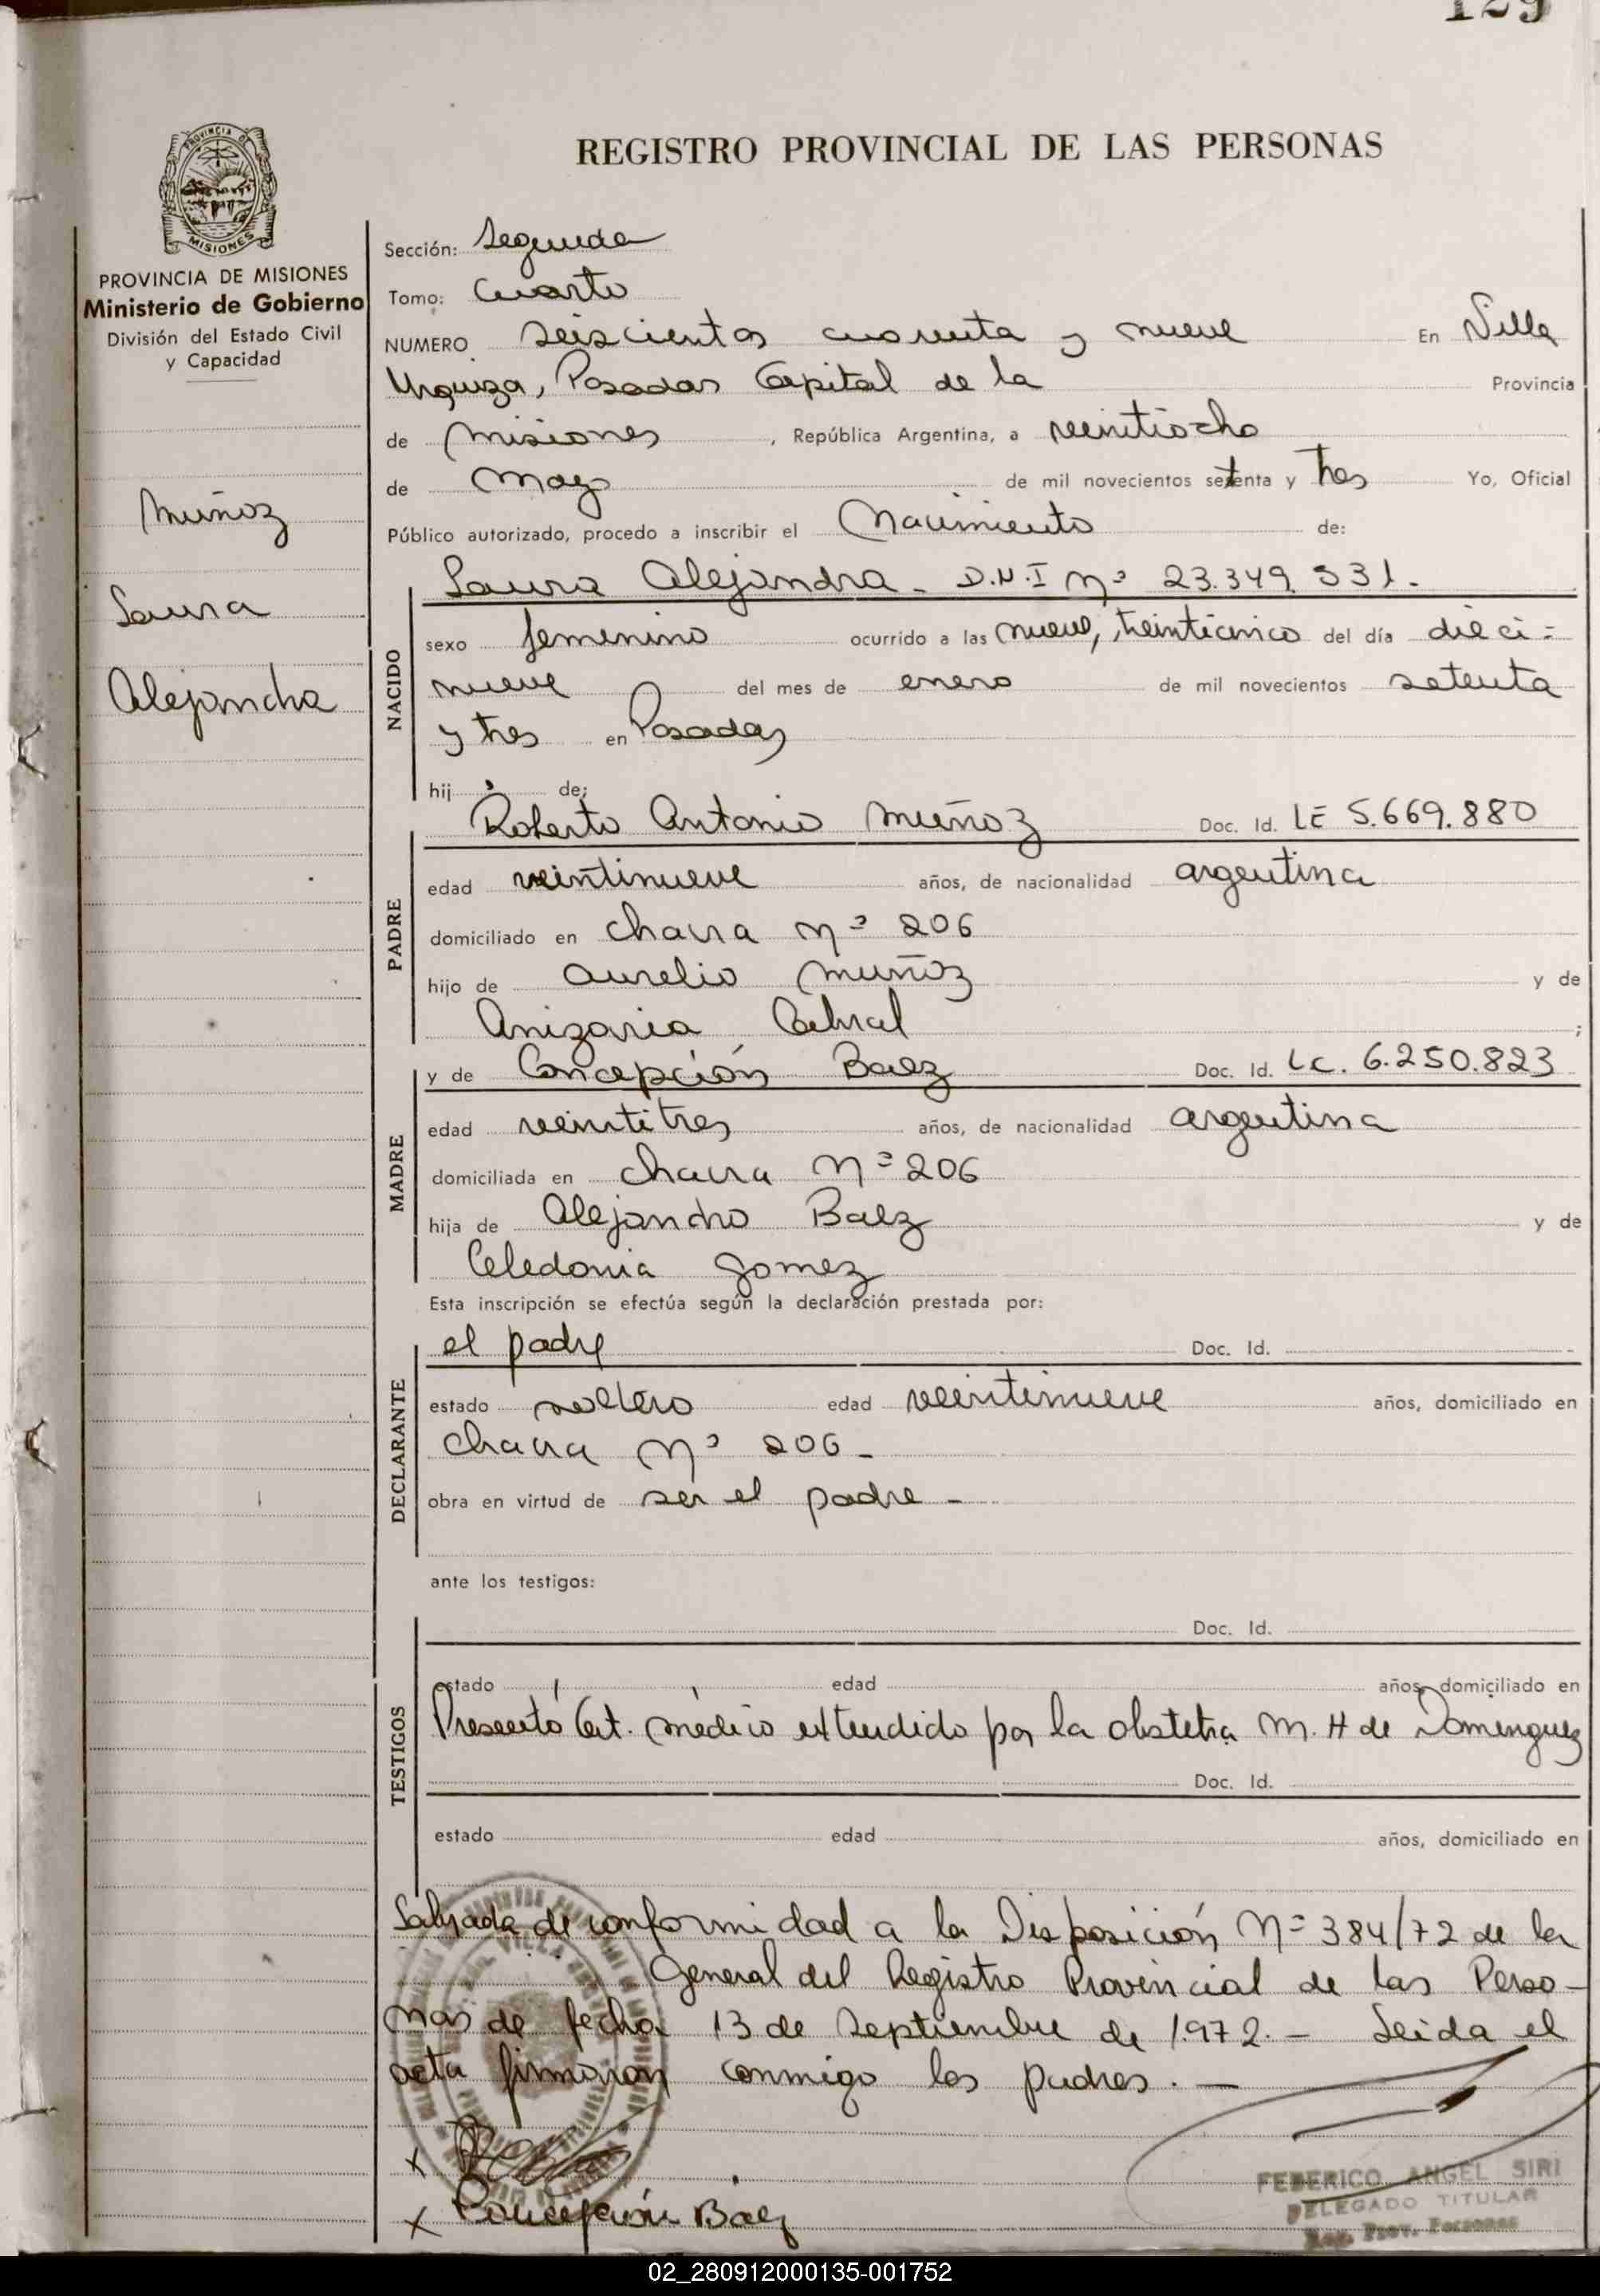 129
PROVINCIA DE
MISIONES
REGISTRO PROVINCIAL DE LAS PERSONAS
PROVINCIA DE MISIONES
Ministerio de Gobierno
División del Estado Civil
y Capacidad
Muñoz
Laura
Alejandra
Sección: Segunda
Tomo: Cuarto
NUMERO seiscientos cuarenta y nueve En Villa
Urquiza, Posadas Capital de la Provincia
de Misiones, República Argentina, a veintiocho
de Mayo de mil novecientos setenta y tres Yo, Oficial
Público autorizado, procedo a inscribir el Nacimiento de:
Laura Alejandra - D.N.I Nº 23.349.531.
NACIDO
sexo femenino ocurrido a las nueve, treinticinco del día dieci=
nueve del mes de enero de mil novecientos setenta
y tres en Posadas
hij a de;
Roberto Antonio Muñoz Doc. Id. LE 5.669.880
PADRE
edad veintinueve años, de nacionalidad argentina
domiciliado en chacra Nº 206
hijo de Aurelio Muñoz y de
Cabral;
y de Concepción Baez Doc. Id. LC. 6.250.823
MADRE
edad veintitres años, de nacionalidad argentina
domiciliada en chacra Nº 206
hija de Alejandro Baez y de
Celedonia Gomez
Esta inscripción se efectúa según la declaración prestada por:
el padre Doc. Id.
DECLARANTE
estado soltero edad veintinueve años, domiciliado en
chacra Nº 206 -
obra en virtud de ser el padre -
ante los testigos:
Doc. Id.
TESTIGOS
estado edad años, domiciliado en
Presentó Cert. médico extendido por la obstetra M. H de Dominguez
Doc. Id.
estado edad años, domiciliado en
Labrada de conformidad a la Disposición Nº 384/72 de la
General del Registro Provincial de las Perso-
nas de fecha 13 de Septiembre de 1.972. - Leida el
acta firmaron conmigo los padres. -
x
x Concepción Baez
FEDERICO ANGEL SIRI
DELEGADO TITULAR
Reg. Prov. Personas
02_280912000135-001752